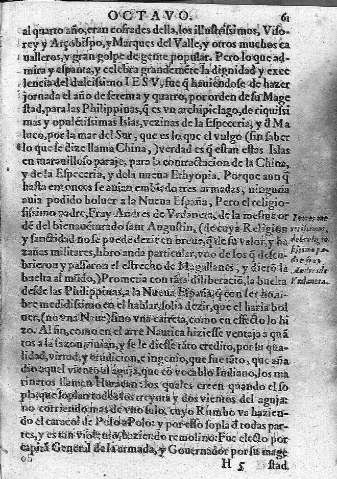 OCTAVO. 61
al quarto año, eran cofrades della, los illustrissimos, Viso-
rey y Arçobispo, y Marques del Valle, y otros muchos ca
ualleros, y gran golpe de gente popular. Pero lo que ad-
mira y espanta, y celebra grandemẽte la dignidad y exce
lencia del dulcissimo IESV, fue q̃ hauiẽndose de hazer
jornada el año de setenta y quatro, por orden de su Mage
stad, para las Philippinas, q̃ es vn archipielago, de riquissi
mas y opulentissimas Islas, vezinas de la Especeria, y đ Ma
luco, por la mar del Sur, que es lo que el vulgo (sin saber
lo que se dize llama China, ) verdad es q̃ estan estas Islas
en marauilloso paraje, para la contractacion de la China,
y de la Especeria, y dela nueua Ethyopia. Porque aun q̃
hasta entonces se auian embiado tres armadas, ninguna
auia podido boluer a la Nueua España, Pero el religio-
sissimo padre, Fray Andres de Verdaneta, de la mesma or
dẽ del bienauenturado sant Augustin, (de cuya Religion
y sanctidad no se puede dezir en breue, q̃ de su valor, y ha
zañas militares, libro anda particular, vno de los q̃ descu-
brieron y passaron el estrecho de Magallanes, y dierõ la
buelta al mũdo,) Prometia con rãta facilidad, la buelta
desde las Philippinas, a la Nueua España, q̃ con ser hõbre
medidissimo en el hablar, solia dezir, que el haria bol
uer, (no vna Naue) sino vna carreta, como en effecto lo hi
zo. Al fin, como en el arte Nautica hiziesse ventaja a quã
tos a la sazon viuian, y se le diesse tãto credito, por su qua
lidad, virtud, y erudicion, e ingenio, que fue tãto, que aña
dio aquel viento al aguja, que cõ vocablo Indiano, los ma
rineros llaman Huracan: los quales creen quando el so
pla, que soplan todos los treynta y dos vientos del aguja:
no corriendo mas de vno solo, cuyo Rumbo va hazien-
do el caracol de Polo a Polo: y por esso sopla đ todas par-
tes, y es tan violento, haziendo remolino. Fue electo por
capitã General de la armada, y Gouernador por su mage
H 5 stad.